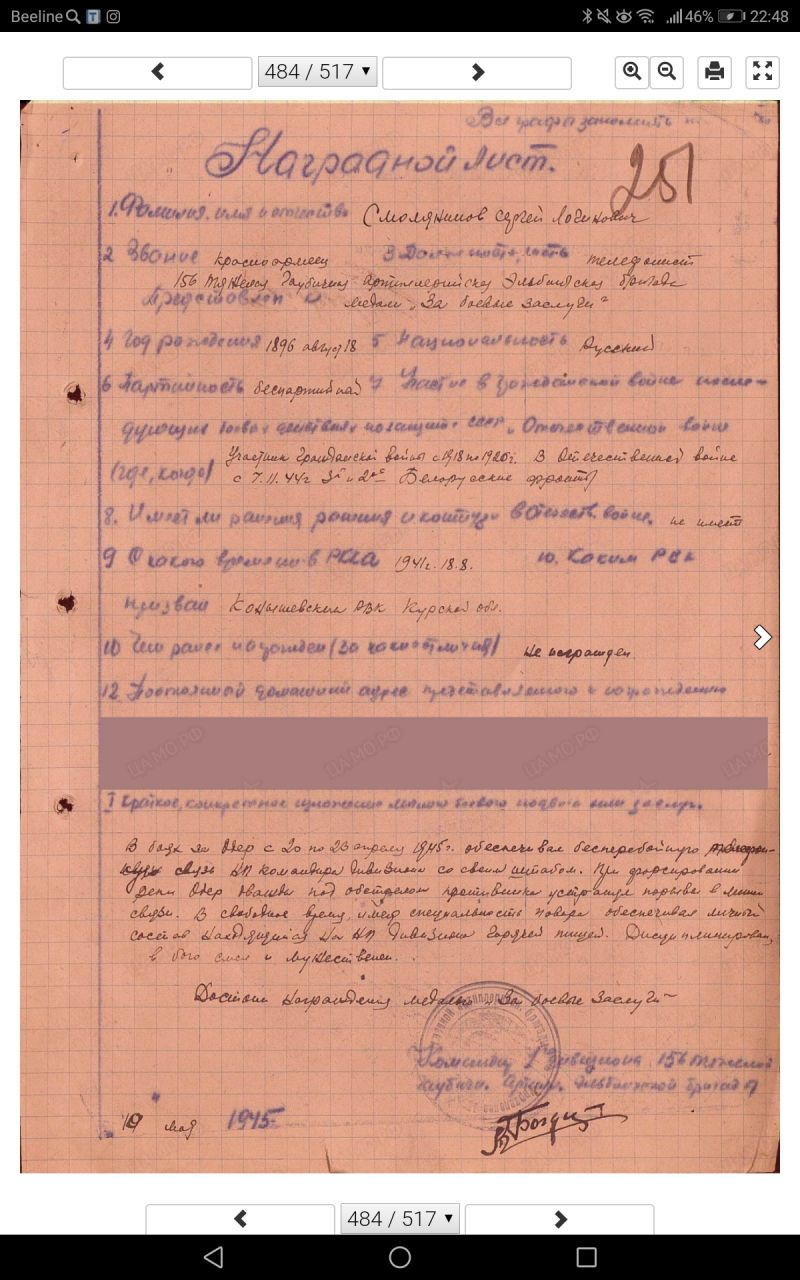 Beeline 46% 22:48
484 / 517
Все графы заполнять
Наградной лист.
251
1. Фамилия, имя и отчество Смолянинов Сергей Логинович
2 Звание красноармеец 3 Должность, часть телефонист
156 тяжелая Гаубичная Артиллерийская Эльбингская бригада
Представлен к медали „За боевые заслуги"
4 Год рождения 1896 август 18 5 Национальность Русский
6 Партийность беспартийный 7 Участие в гражданской войне после-
дующих боевых действиях по защите СССР и Отечественной войне
(где, когда) Участник Гражданской войны с 1918 по 1920 г. В Отечественной войне
с 7.11.44г 3й и 2ой Белорусские фронты
8. Имеет ли ранения и контузии в Отечеств. войне. не имеет
9 С какого времени в РККА 1941г. 18.8. 10. Каким РВК
призван Конышевским РВК Курской обл.
10 Чем ранее награжден (за какие отличия) не награжден.
12. Постоянный домашний адрес представляемого к награждению
ЦАМО.РФ ЦАМО.РФ ЦАМО.РФ
I Краткое, конкретное изложение личного боевого подвига или заслуг.
В боях за Одер с 20 по 23 апреля 1945г. обеспечивал бесперебойную
связь НП командира дивизиона со своим штабом. При форсировании
реки Одер дважды под обстрелом противника устранял порывы в линии
связи. В свободное время, имея специальность повара обеспечивал личный
состав находящийся на НП дивизиона горячей пищей. Дисциплинирован,
в бою смел и мужественен.
Достоин награждения медалью „За боевые заслуги"
Командир 1 дивизиона 156 тяжелой
Гаубичн. Артил. Эльбингской бригады
19 мая 1945
484 / 517